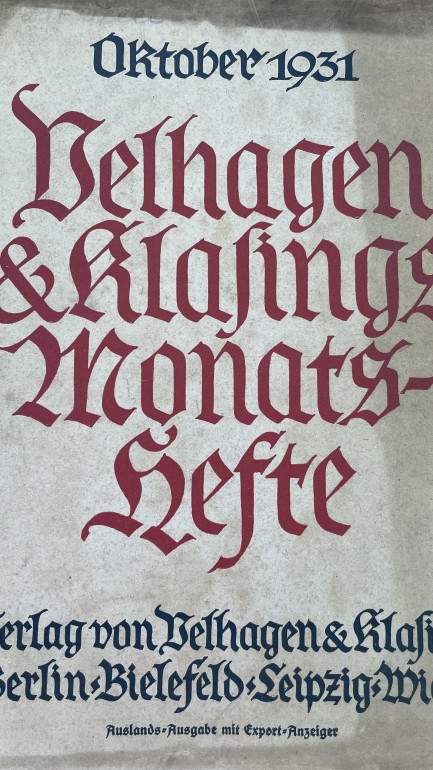 Oktober 1931
Velhagen
& Klaſings
Monats-
Hefte
Verlag von Velhagen & Klaſi
Berlin-Bielefeld-Leipzig-Wi
Auslands-Ausgabe mit Export-Anzeiger